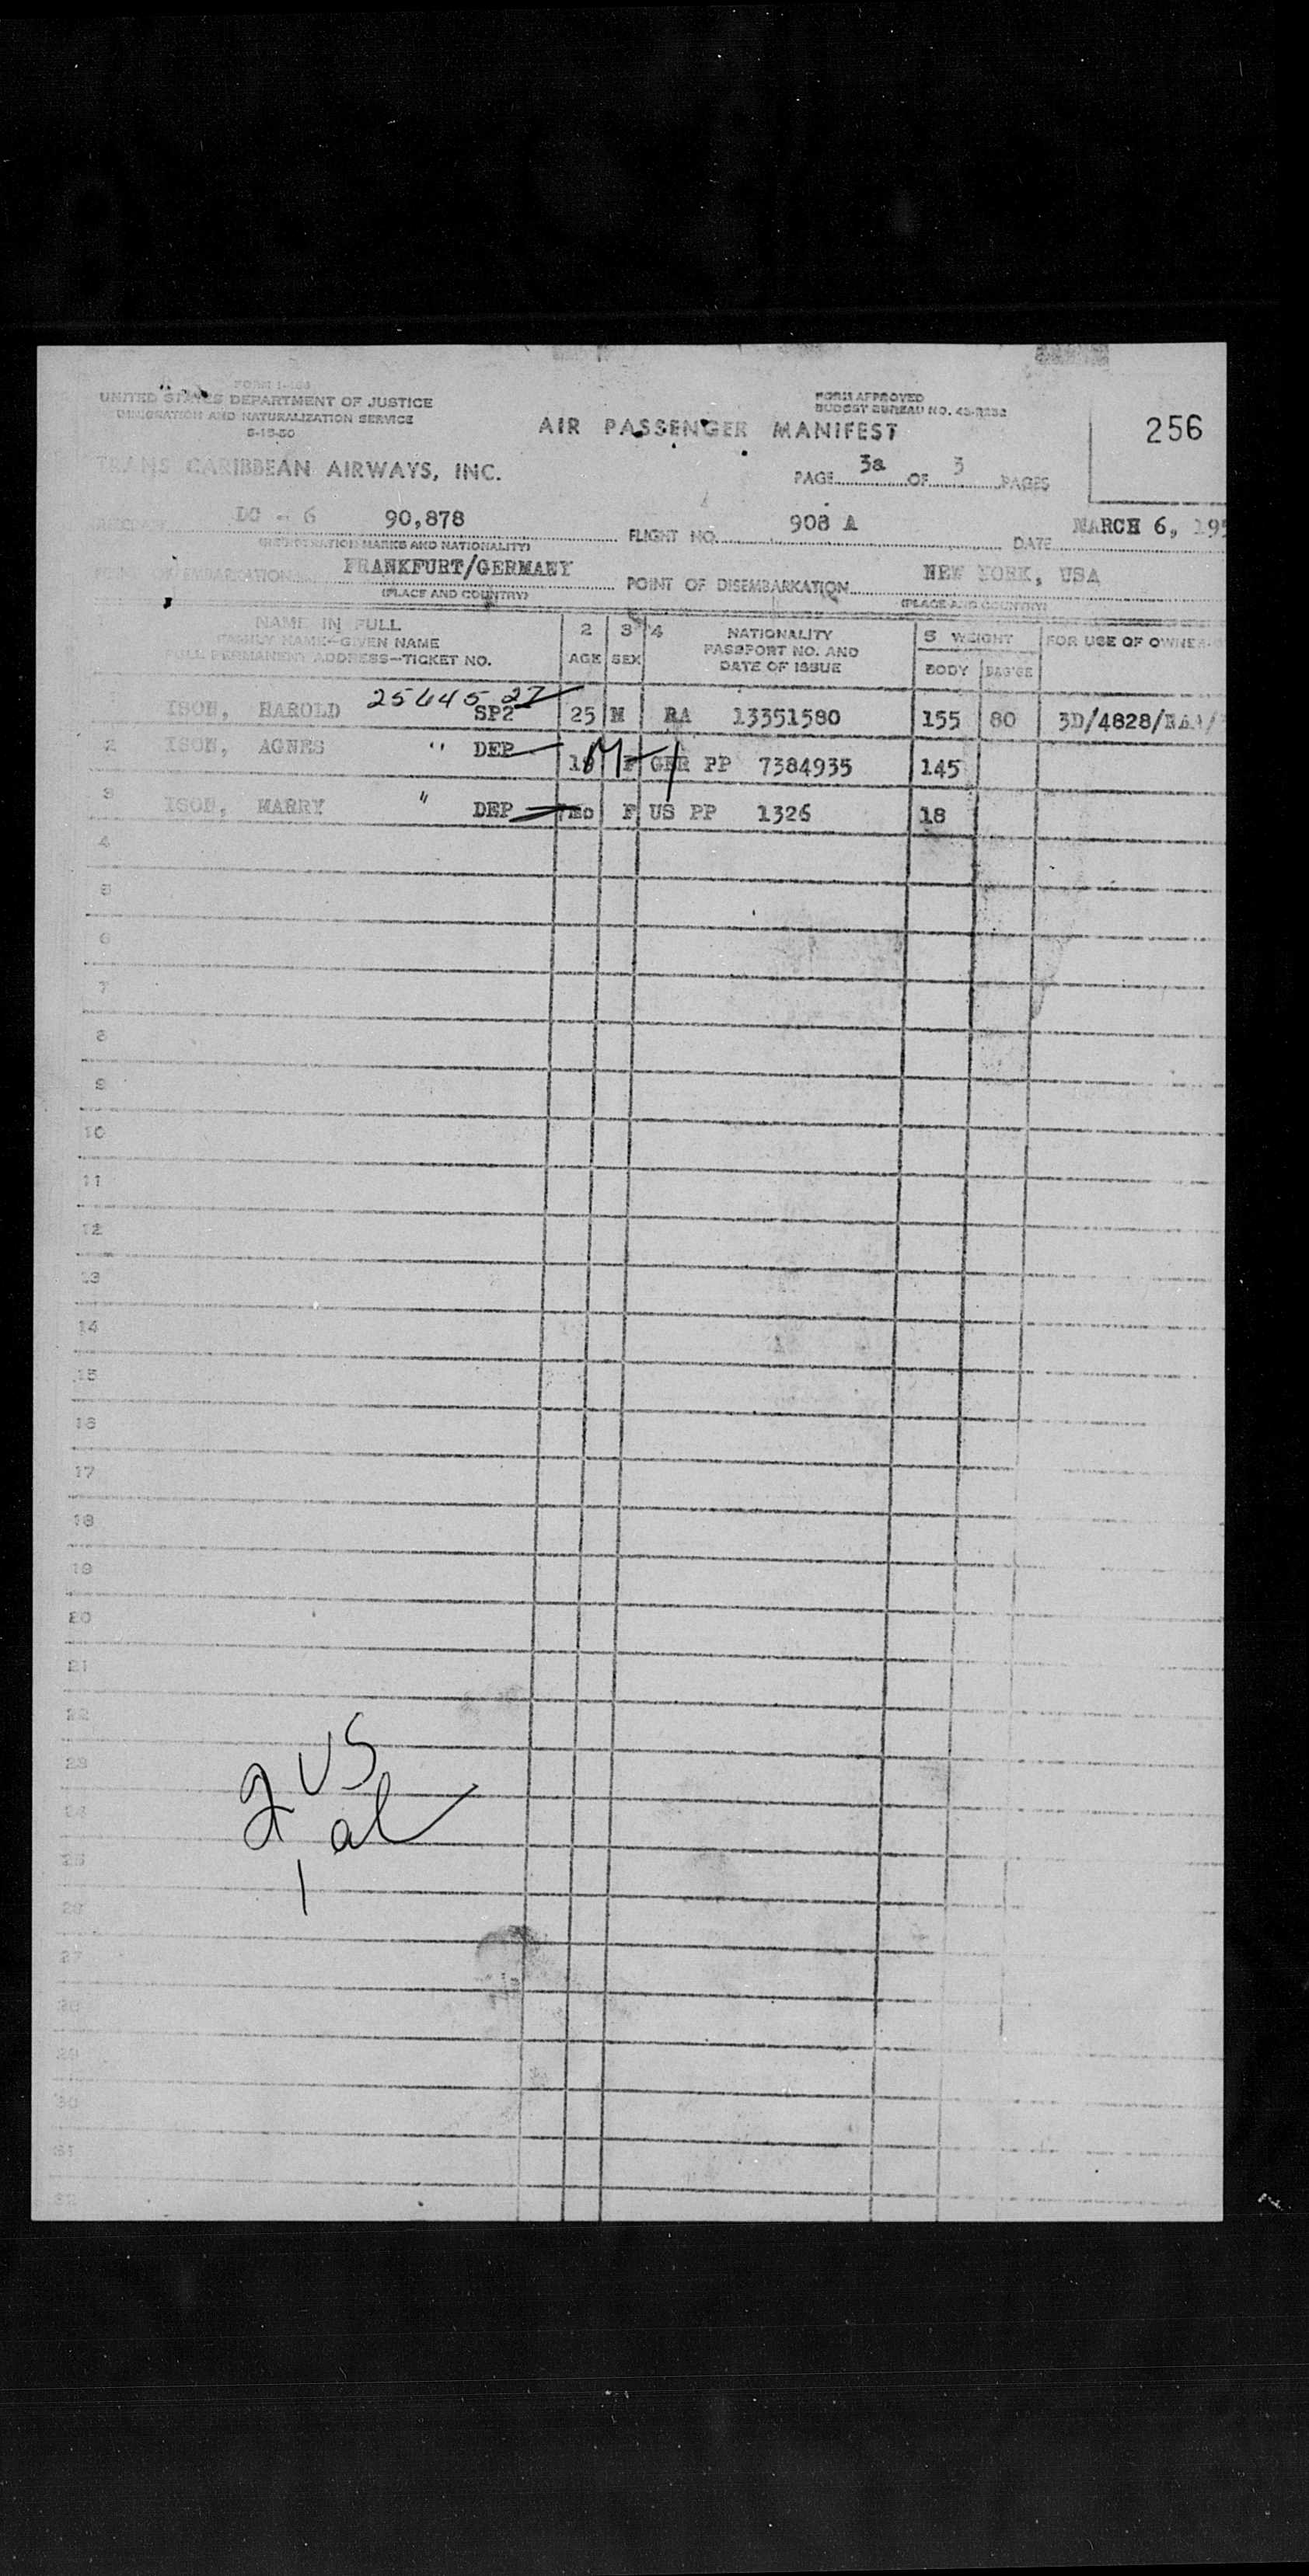 FORM I-466
UNITED STATES DEPARTMENT OF JUSTICE
IMMIGRATION AND NATURALIZATION SERVICE
5-15-50
FORM APPROVED
BUDGET BUREAU NO. 43-R232
AIR PASSENGER MANIFEST
256
TRANS CARIBBEAN AIRWAYS, INC.
PAGE 3a OF 3 PAGES
DC - 6 90,878
FLIGHT NO. 908 A
DATE MARCH 6, 195
(REGISTRATION MARKS AND NATIONALITY)
POINT OF EMBARKATION FRANKFURT/GERMANY
POINT OF DISEMBARKATION NEW YORK, USA
(PLACE AND COUNTRY)
(PLACE AND COUNTRY)
NAME IN FULL
FAMILY NAME—GIVEN NAME
FULL PERMANENT ADDRESS—TICKET NO.
2 AGE
3 SEX
4 NATIONALITY
PASSPORT NO. AND
DATE OF ISSUE
5 WEIGHT
BODY BAG'GE
FOR USE OF OWNER
ISON, HAROLD 25645 27 SP2 25 M RA 13351580 155 80 3D/4828/
2 ISON, AGNES " DEP F GER PP 7384935 145
3 ISON, MARRY " DEP F US PP 1326 18
4
5
6
7
8
9
10
11
12
13
14
15
16
17
18
19
20
21
22
23
24
25
26
27
28
29
30
31
32
2 US
1 al